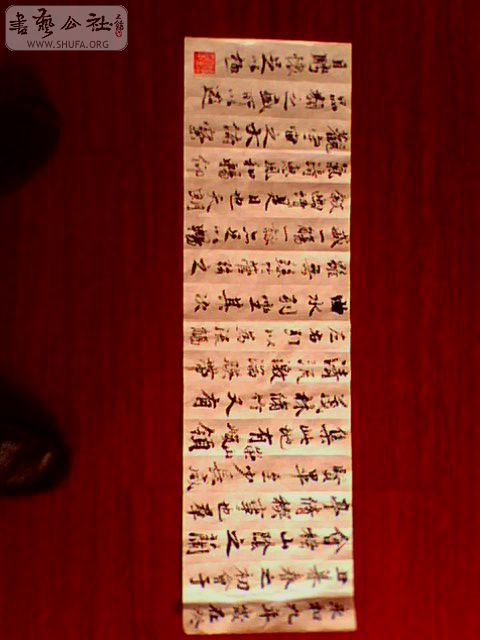 書藝公社
WWW.SHUFA.ORG
永和九年歲在癸
丑暮春之初會于
會稽山陰之蘭
亭脩禊事也群
賢畢至少長咸
集此地有崇山峻領
茂林脩竹又有
清流激湍映帶
左右引以為流觴
曲水列坐其次
雖無絲竹管絃之
盛一觴一詠亦足以暢
敘幽情是日也天朗
氣清惠風和暢仰
觀宇宙之大俯察
品類之盛所以遊
目騁懷足以極